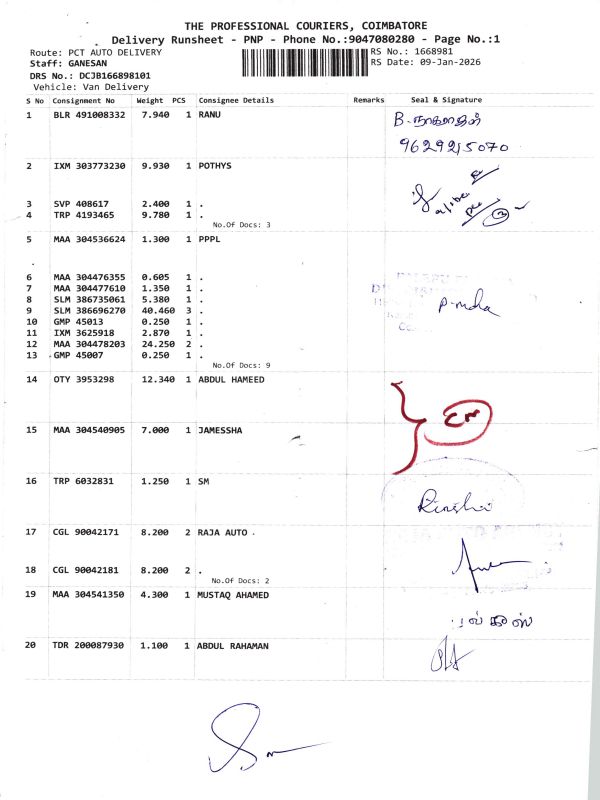 THE PROFESSIONAL COURIERS, COIMBATORE
Delivery Runsheet - PNP - Phone No.:9047080280 - Page No.:1
Route: PCT AUTO DELIVERY
RS No.: 1668981
Staff: GANESAN
RS Date: 09-Jan-2026
DRS No.: DCJB166898101
Vehicle: Van Delivery
S No Consignment No Weight PCS Consignee Details Remarks Seal & Signature
1 BLR 491008332 7.940 1 RANU
9629215070
2 IXM 303773230 9.930 1 POTHYS
3 SVP 408617 2.400 1 .
4 TRP 4193465 9.780 1 .
No.Of Docs: 3
5 MAA 304536624 1.300 1 PPPL
6 MAA 304476355 0.605 1 .
7 MAA 304477610 1.350 1 .
8 SLM 386735061 5.380 1 .
9 SLM 386696270 40.460 3 .
10 GMP 45013 0.250 1 .
11 IXM 3625918 2.870 1 .
12 MAA 304478203 24.250 2 .
13 GMP 45007 0.250 1 .
No.Of Docs: 9
14 OTY 3953298 12.340 1 ABDUL HAMEED
15 MAA 304540905 7.000 1 JAMESSHA
16 TRP 6032831 1.250 1 SM
17 CGL 90042171 8.200 2 RAJA AUTO .
18 CGL 90042181 8.200 2 .
No.Of Docs: 2
19 MAA 304541350 4.300 1 MUSTAQ AHAMED
20 TDR 200087930 1.100 1 ABDUL RAHAMAN